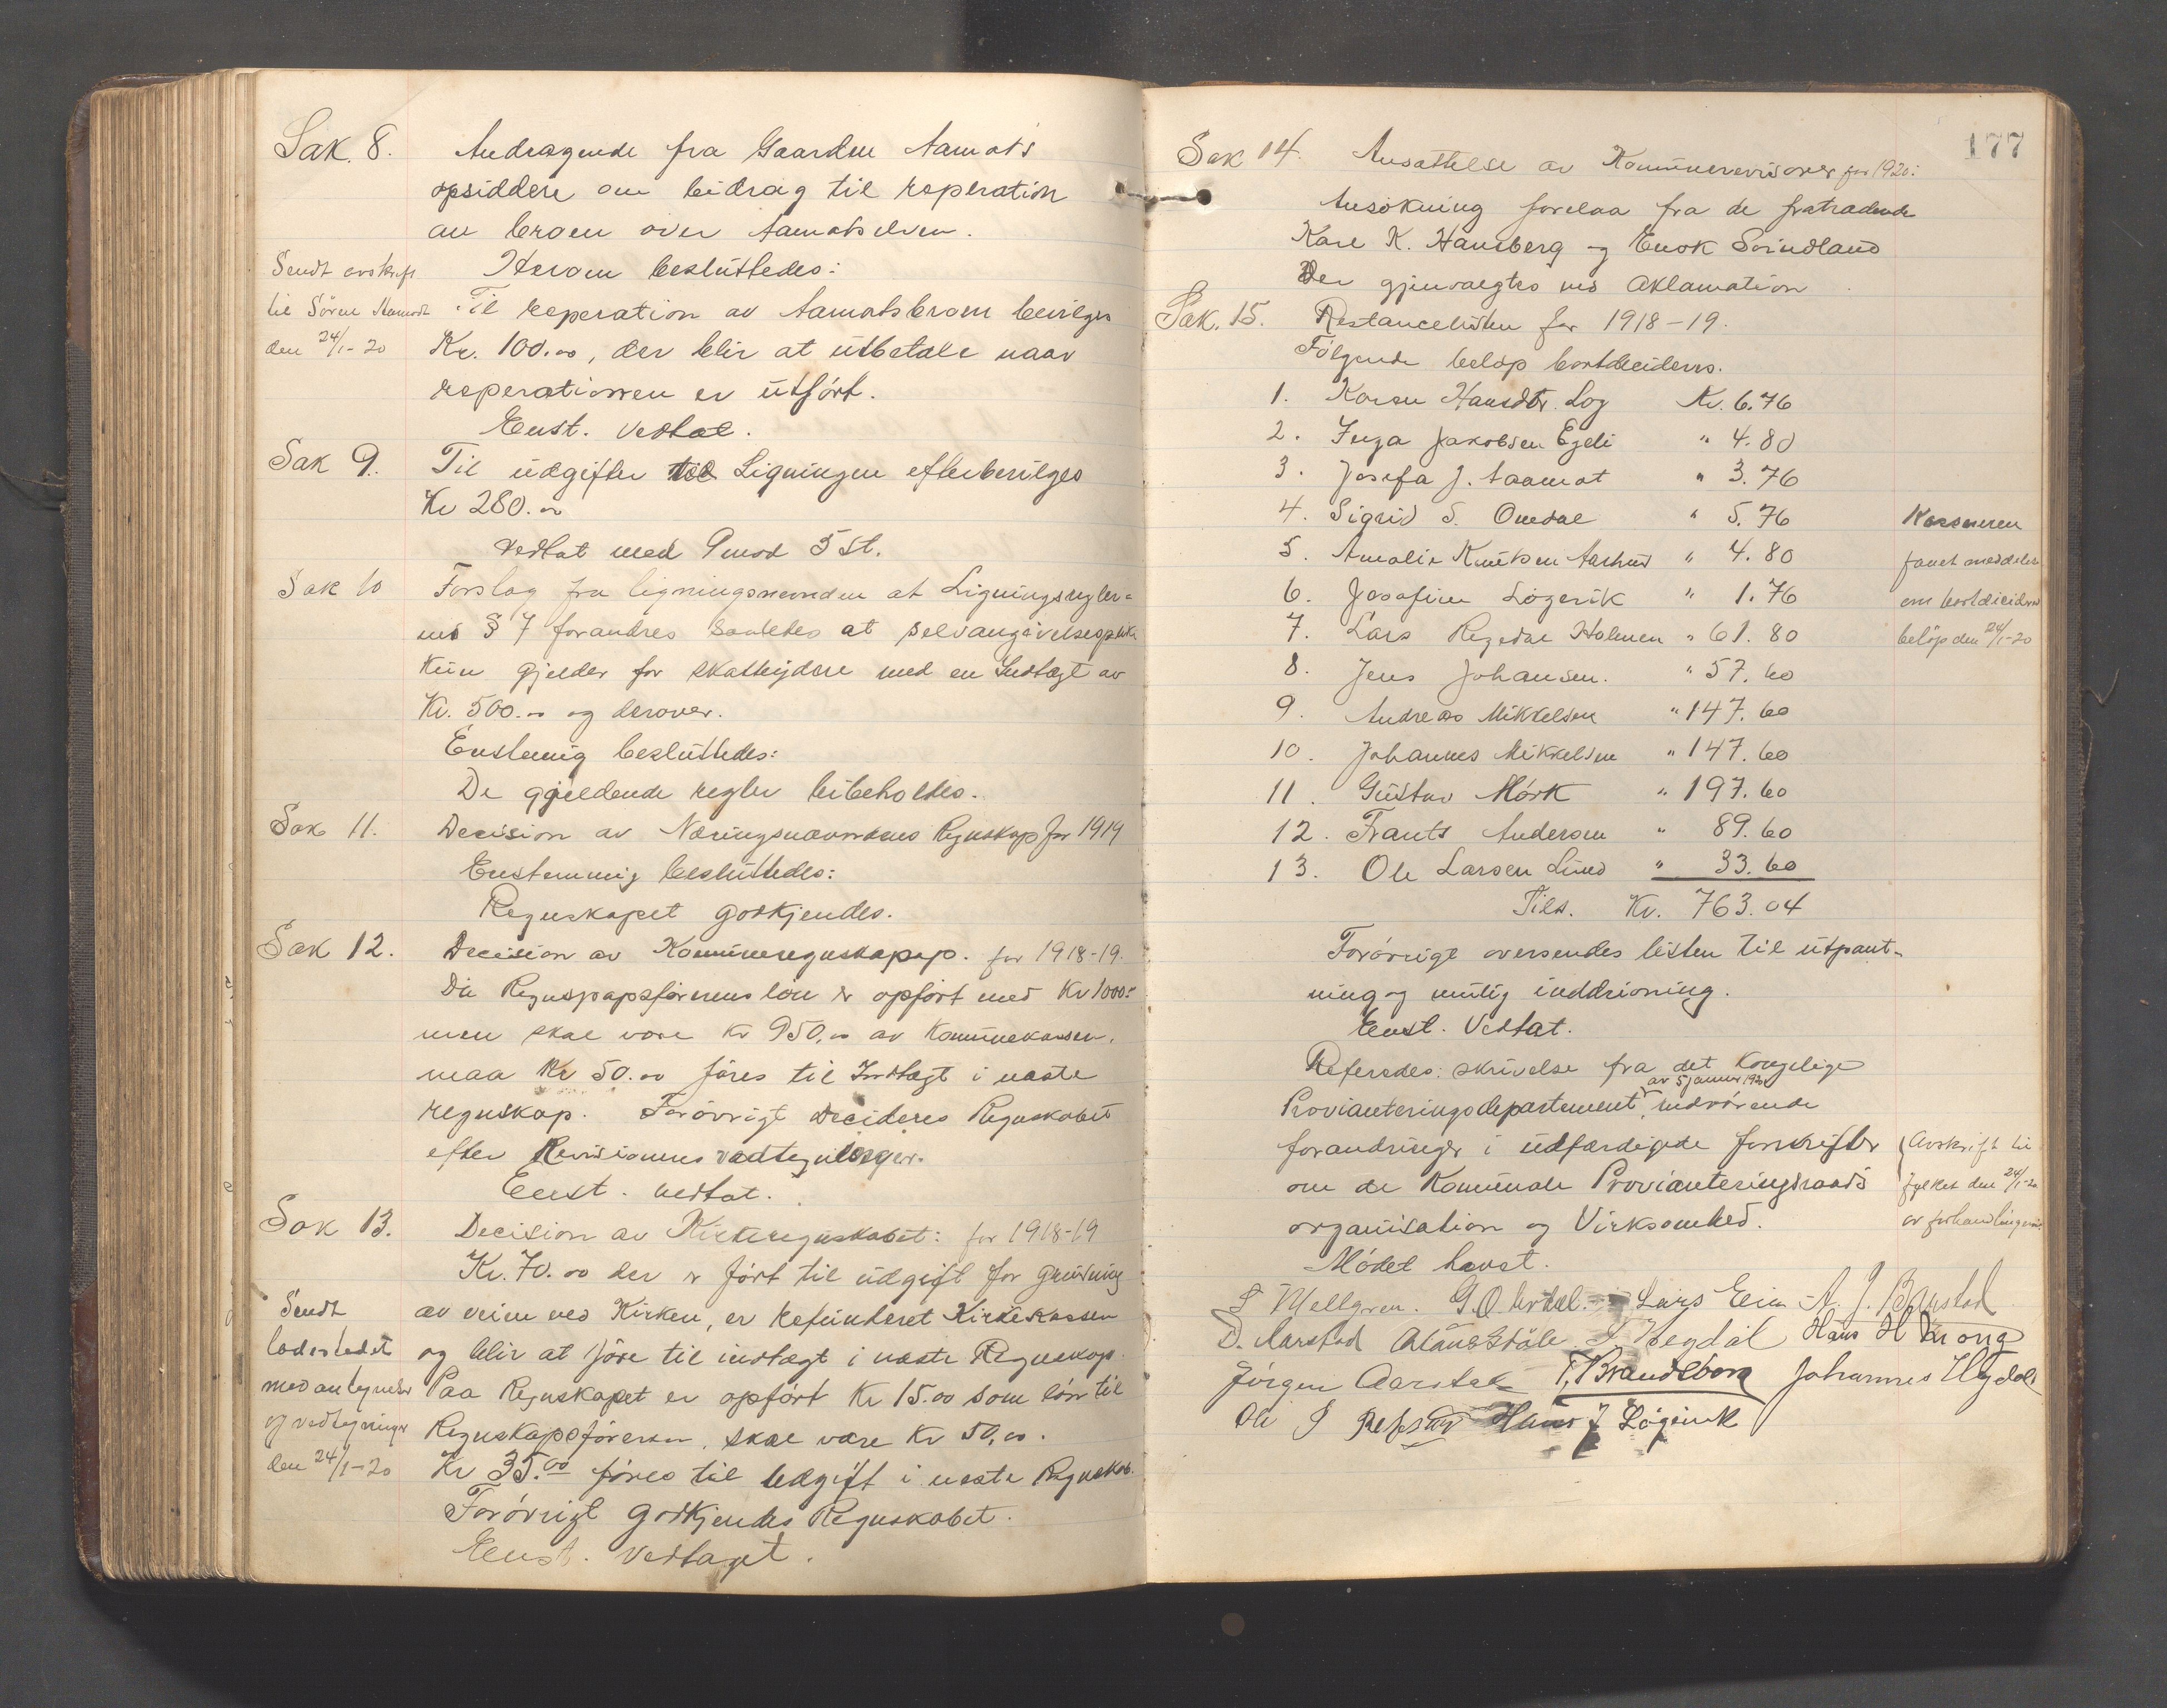 Sak. 8. Andragende fra Gaarden Aamots
opsiddere om bidrag til reperation
av broen over Aamotselven.
Herom besluttedes:
Sendt avskrift
til Sören Aamodt
den 24/1-20
Til reperation av Aamotsbroen bevilges
Kr. 100.00, der blir at utbetale naar
reperationen er utfört.
Enst. vedtat.
Sak 9. Til udgifter til Ligningen efterbevilges
Kr 280.00
vedtat med 9 mod 3 St.
Sak 10 Forslag fra ligningsnevnden at Ligningsregler=
nes § 7 forandres saaledes at selvangivelsesplikt
kun gjelder for skatteydere med en Indtægt av
Kr. 500.00 og derover.
Enstemig besluttedes:
De gjeldende regler bibeholdes.
Sak 11. Decision av Næringsnævndens Regnskap for 1919
Enstemmig besluttedes:
Regnskapet godkjendes.
Sak 12. Decision av Kommuneregnskapap. for 1918-19.
Die Regnspapsförerens lön er opfört med Kr 1000.-
men skal være Kr 950.00 av Kommunekassen.
maa Kr 50.00 föres til Indtægt i næste
regnskap. Forövrigt Decideres Regnskabet
efter Revisionens vedtegninger.
Enst. vedtat.
Sak 13. Decision av Kirkeregnskabet: for 1918-19
Kr. 70.00 der er fört til udgift for grusning
av veien ved Kirken, er Refunderet Kirkekassen
og blir at före til indtægt i næste Regnskap.
Paa Regnskapet er opfört Kr 15.00 som lön til
Regnskapsföreren, skal være Kr 50,00.
Kr 35.00 föres til Udgift i næste Regnskab.
Forövrigt godkjendes Regnskabet.
Enst. vedtaget.
Sendt
ladestedet
med antegnelser
og vedtegninger
den 24/1-20
177
Sak 14. Ansættelse av Kommunerevisorer for 1920:
Ansökning forelaa fra de fratrædende
Karl K. Hamberg og Enok Svindland
Der gjenvalgtes ved Aklamation
Sak. 15. Restancelisten for 1918-19.
Fölgende belöp bortdecideres.
1. Karen Hansdtr. Log Kr. 6.76
2. Inga Jakobsen Egeli " 4.80
3. Josefa J. Aamot " 3.76
4. Sigrid S. Omdal " 5.76
5. Amalie Knutsen Aashus " 4.80
6. Josefine Lögevik " 1.76
7. Lars Regedal Holmen " 61.80
8. Jens Johansen. " 57.60
9. Andreas Mikkelsen " 147.60
10. Johannes Mikkelsen " 147.60
11. Gustav Mörk " 197.60
12. Frants Andersen " 89.60
13. Ole Larsen Lund " 33.60
Tils. Kr. 763.04
Kasseren
faaet meddelelse
om bortdeciderede
belöp den 24/1-20
Forövrigt oversendes listen til utpant-
ning og mulig inddrivning.
Enst. Vedtat.
Referedes: skrivelse fra det Kongelige
Provianteringsdepartement av 5 januar 1920, vedrörende
forandringer i udfærdigede forskrifter
om de Kommunale Provianteringsraads
organisation og Virksomhed.
Mödet hævet.
Avskrift til
fylket den 24/1-20
av forhandlingerne
S Mellgren. G. O. Urdal. Lars Eeim A. J. Bøustad
D. Aarstad Claus Stöle S Hegdal Hans H Krong
Jörgen Aarstad T. Brandsborg Johannes Hegdal
Ole S Refsnes Hans J Lögevik